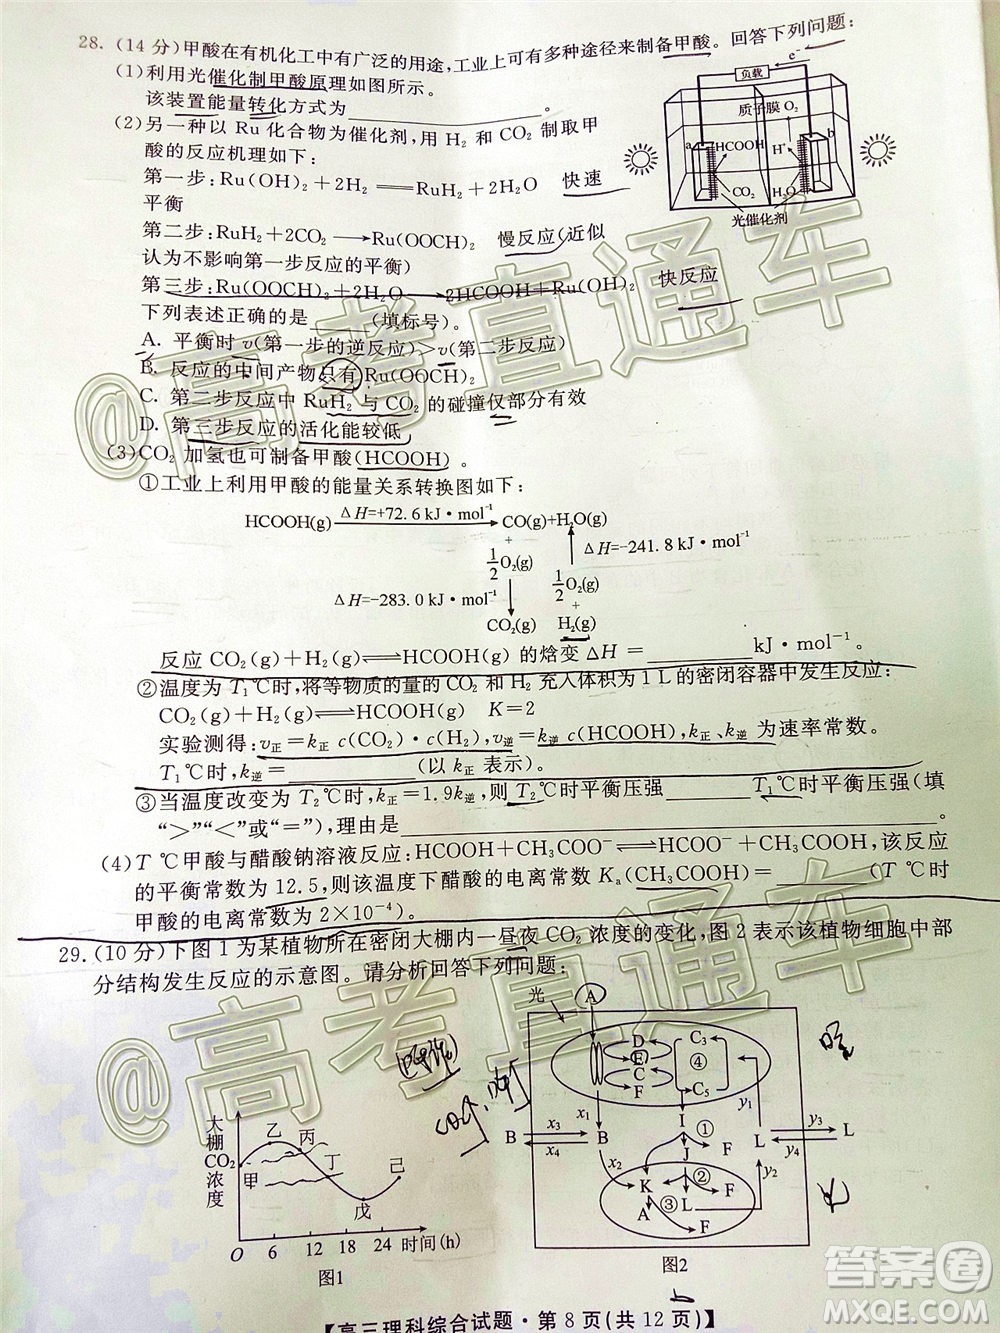 28. (14 分)甲酸在有机化工中有广泛的用途,工业上可有多种途径来制备甲酸。回答下列问题:
(1)利用光催化制甲酸原理如图所示。
该装置能量转化方式为________。
(2)另一种以 Ru 化合物为催化剂,用 H₂ 和 CO₂ 制取甲
酸的反应机理如下:
第一步:Ru(OH)₂+2H₂══RuH₂+2H₂O 快速
平衡
第二步:RuH₂+2CO₂→Ru(OOCH)₂ 慢反应(近似
认为不影响第一步反应的平衡)
第三步:Ru(OOCH)₂+2H₂O→2HCOOH+Ru(OH)₂ 快反应
下列表述正确的是____(填标号)。
A. 平衡时 v(第一步的逆反应)>v(第二步反应)
B. 反应的中间产物只有Ru(OOCH)₂
C. 第二步反应中 RuH₂ 与 CO₂ 的碰撞仅部分有效
D. 第三步反应的活化能较低
负载
e⁻
质子膜 O₂
a
b
HCOOH
H⁺
CO₂
H₂O
光催化剂
(3)CO₂ 加氢也可制备甲酸(HCOOH)。
①工业上利用甲酸的能量关系转换图如下:
HCOOH(g) ΔH=+72.6 kJ·mol⁻¹ CO(g)+H₂O(g)
+ ½O₂(g)
ΔH=-241.8 kJ·mol⁻¹
½O₂(g)
+
ΔH=-283.0 kJ·mol⁻¹
CO₂(g) H₂(g)
反应 CO₂(g)+H₂(g)⇌HCOOH(g) 的焓变 ΔH=________kJ·mol⁻¹。
②温度为 T₁℃时,将等物质的量的 CO₂ 和 H₂ 充入体积为 1 L 的密闭容器中发生反应:
CO₂(g)+H₂(g)⇌HCOOH(g) K=2
实验测得:v正=k正 c(CO₂)·c(H₂),v逆=k逆c(HCOOH),k正、k逆 为速率常数。
T₁℃时,k逆=________(以 k正 表示)。
③当温度改变为 T₂℃时,k正=1.9k逆,则 T₂℃时平衡压强______T₁℃时平衡压强(填
“>”“<”或“=”),理由是________。
(4)T ℃甲酸与醋酸钠溶液反应:HCOOH+CH₃COO⁻⇌HCOO⁻+CH₃COOH,该反应
的平衡常数为 12.5,则该温度下醋酸的电离常数 Kₐ(CH₃COOH)=______(T℃时
甲酸的电离常数为 2×10⁻⁴)。
29. (10 分)下图 1 为某植物所在密闭大棚内一昼夜 CO₂ 浓度的变化,图 2 表示该植物细胞中部
分结构发生反应的示意图。请分析回答下列问题:
大棚CO₂浓度
甲 乙 丙 丁 戊 己
O 6 12 18 24 时间(h)
图1
光 A
D C₃
E ④
C
F C₅
x₁ I ① y₁
B x₃ x₄ B F L y₃ y₄ L
J
x₂ ② y₂
K L F
③
A F
图2
【高三理科综合试题·第 8 页(共 12 页)】
@高考直通车
@高考直通车
答案圈
MXQE.COM